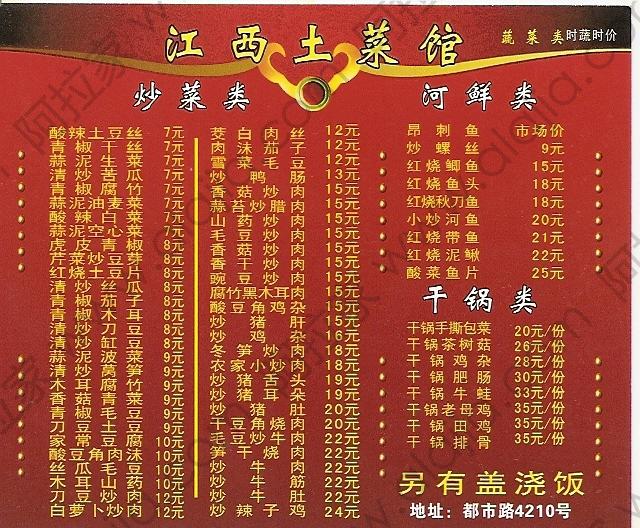 江西土菜馆
蔬菜类时蔬时价
炒菜类
酸辣土豆丝 7元
青椒干丝 7元
蒜泥生菜 7元
清炒苦瓜 7元
青椒腐竹 7元
蒜泥油麦菜 7元
酸辣白菜 7元
蒜泥空心菜 7元
虎皮青椒 8元
芹菜炒豆芽 8元
红烧土豆片 8元
清炒丝瓜 8元
青椒茄子 8元
青椒木耳 8元
清炒刀豆 8元
清炒缸豆 8元
蒜泥菠菜 9元
清炒莴笋 9元
木耳腐竹 9元
香菇青菜 9元
青椒毛豆 9元
刀豆土豆 9元
家常豆腐 10元
酸豆角肉沫 10元
丝瓜毛豆 10元
木耳山药 10元
刀豆炒肉 12元
白萝卜炒肉 12元
茭白肉丝 12元
肉沫茄子 12元
雪菜毛豆 12元
炒鸭肠 13元
香菇炒肉 15元
蒜苔炒腊肉 15元
山药炒肉 15元
毛豆炒肉 15元
香菇炒肉 15元
香干炒肉 15元
豌豆炒肉 15元
腐竹黑木耳肉 15元
酸豆角鸡杂 15元
炒猪肝 15元
炒鸡杂 16元
冬笋炒肉 18元
农家小炒肉 18元
炒猪舌头 19元
炒猪耳朵 19元
炒猪肚 20元
干豆角烧肉 20元
毛豆炒牛肉 22元
笋干烧肉 22元
炒牛肉 22元
炒牛筋 22元
炒牛肚 22元
炒辣子鸡 24元
河鲜类
昂刺鱼 市场价
炒螺丝 9元
红烧鲫鱼 15元
红烧鱼头 18元
红烧秋刀鱼 18元
小炒河鱼 20元
红烧带鱼 21元
红烧泥鳅 22元
酸菜鱼片 25元
干锅类
干锅手撕包菜 20元/份
干锅茶树菇 26元/份
干锅鸡杂 28元/份
干锅肥肠 30元/份
干锅牛蛙 33元/份
干锅老母鸡 35元/份
干锅田鸡 35元/份
干锅排骨 35元/份
另有盖浇饭
地址：都市路4210号